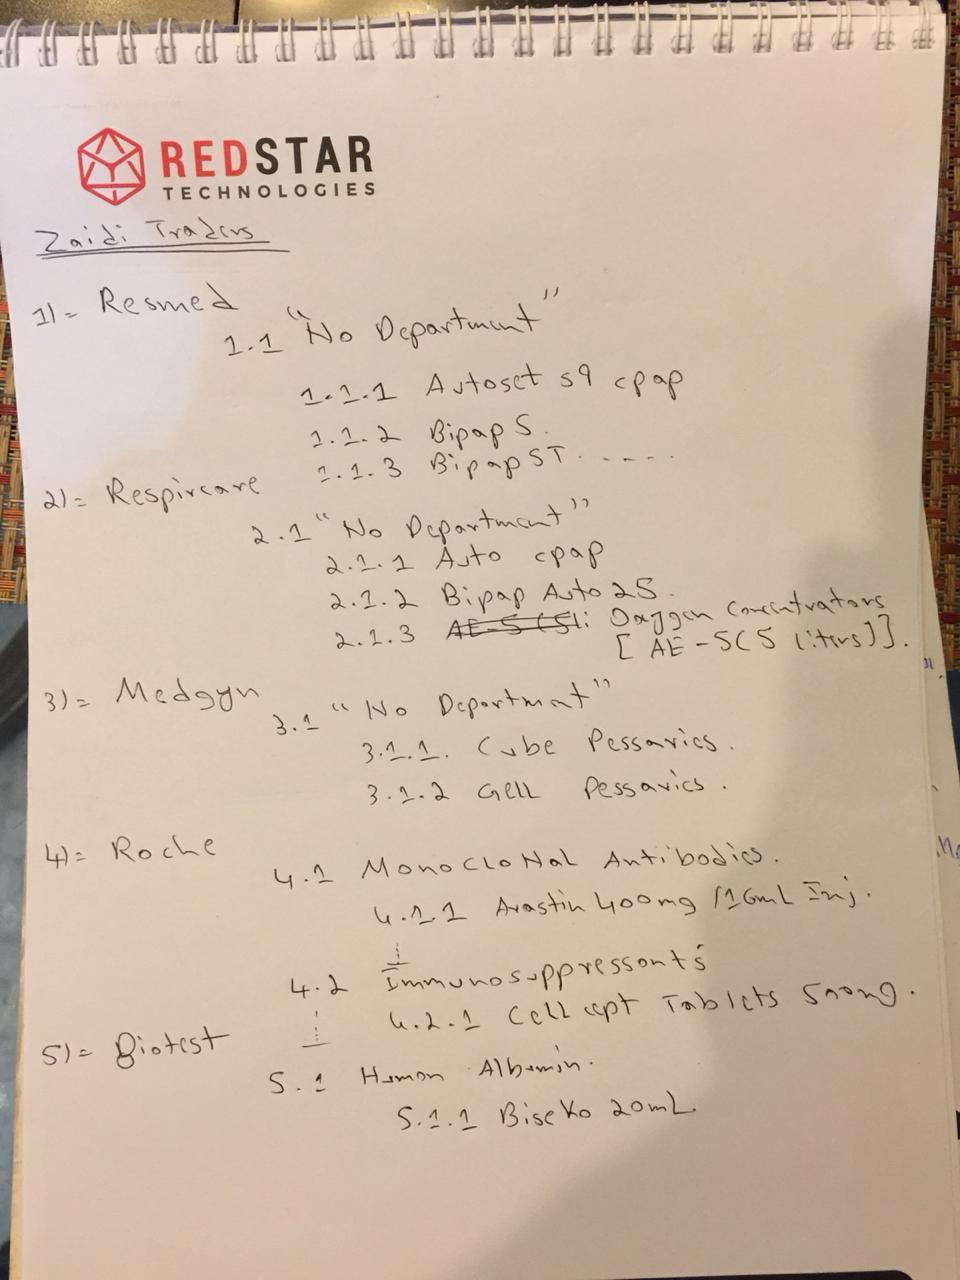 REDSTAR
TECHNOLOGIES
Zaidi Traders
1)= Resmed
1.1 "No Department"
1.1.1 Autoset s9 cpap
1.1.2 Bipap S.
1.1.3 Bipap ST. ....
2)= Respircare
2.1 "No Department"
2.1.1 Auto cpap
2.1.2 Bipap Auto 25.
2.1.3 AE-5 (5l: Oxygen Concentrators
[AE-5(5 liters)].
3)= Medgyn
3.1 "No Department"
3.1.1. Cube Pessaries.
3.1.2 Gell Pessaries.
4)= Roche
4.1 Monoclonal Antibodies.
4.1.1 Avastin 400mg /16mL Inj.
4.2 Immunosuppressants
4.2.1 Cellcept Tablets 500mg.
5)= Biotest
5.1 Human Albumin.
5.1.1 Biseko 20mL.